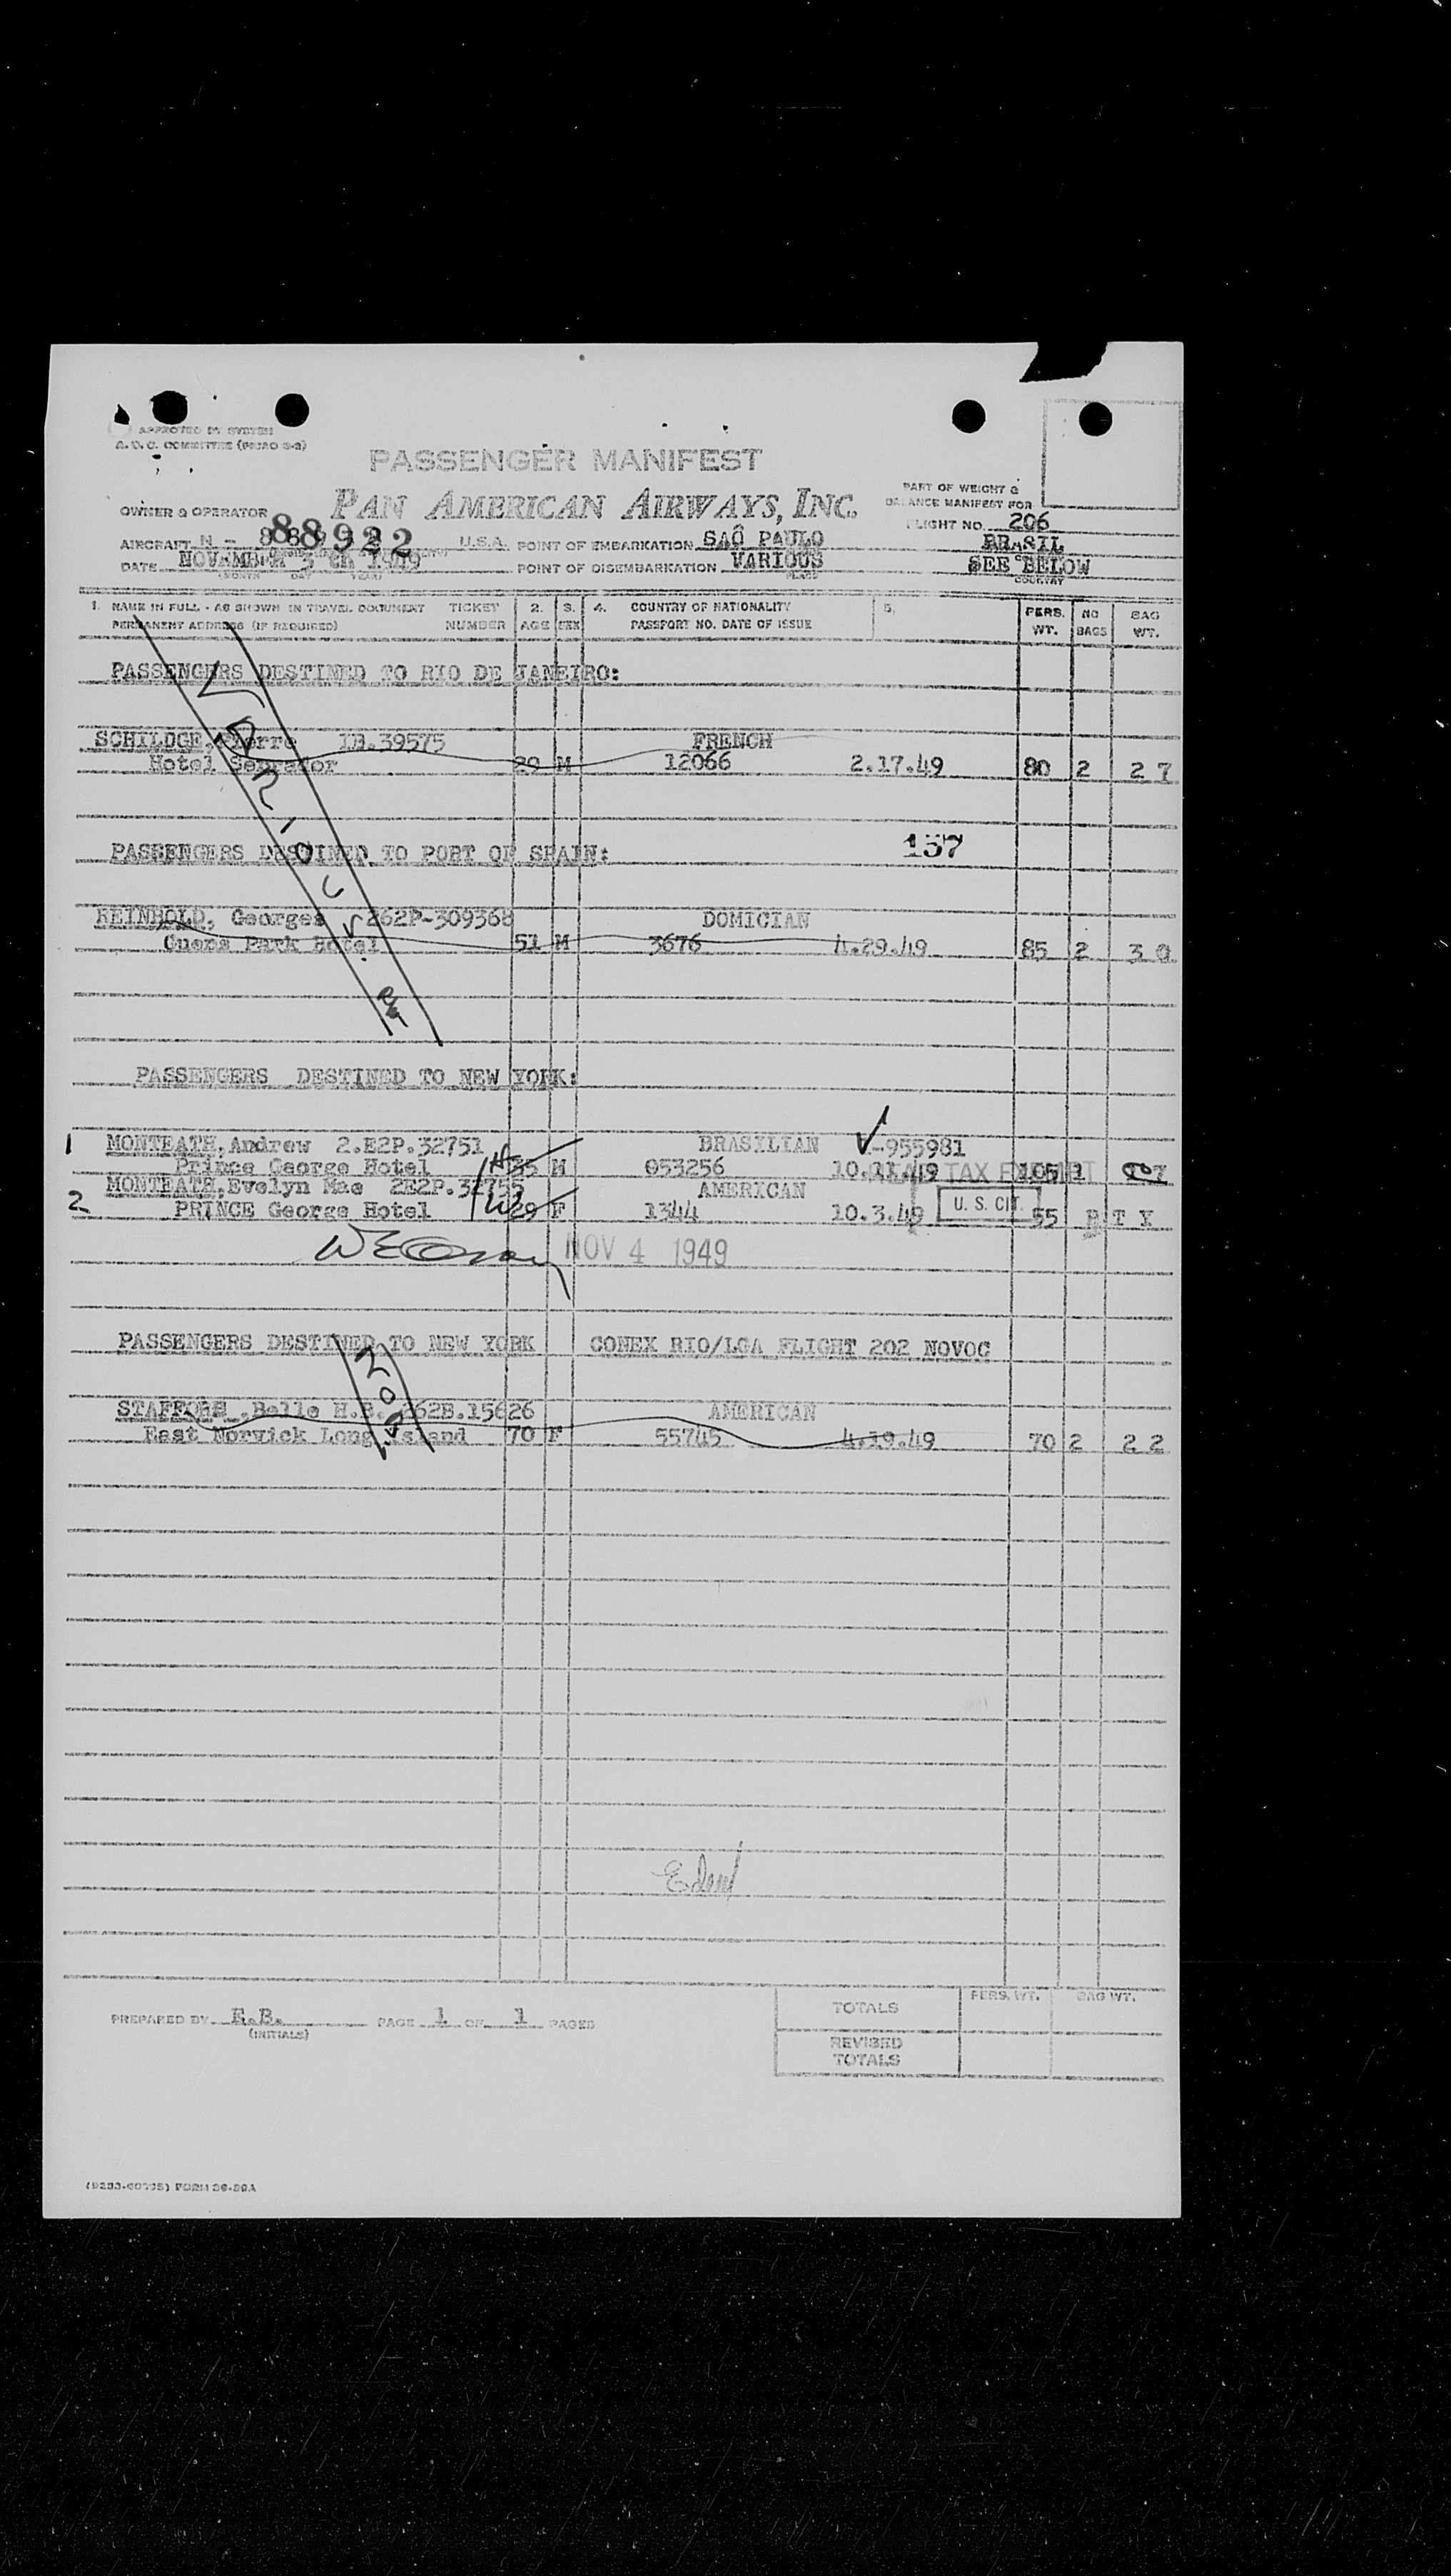 APPROVED BY SYSTEM
A.D.C. COMMITTEE
PASSENGER MANIFEST
PAN AMERICAN AIRWAYS, INC.
PART OF WEIGHT &
BALANCE MANIFEST FOR
OWNER & OPERATOR
FLIGHT NO. 206
AIRCRAFT N - 88922 U.S.A. POINT OF EMBARKATION SAÔ PAULO BRASIL
DATE NOVEMBER 3 th 1949 POINT OF DISEMBARKATION VARIOUS SEE BELOW
(MONTH DAY YEAR) PLACE COUNTRY
1. NAME IN FULL - AS SHOWN IN TRAVEL DOCUMENT TICKET 2. 3. 4. COUNTRY OF NATIONALITY 5. PERS. NO BAG
PERMANENT ADDRESS (IF REQUIRED) NUMBER AGE SEX PASSPORT NO. DATE OF ISSUE WT. BAGS WT.
PASSENGERS DESTINED TO RIO DE JANEIRO:
SCHILDGE, Pierre 39575 FRENCH
Hotel Serrador 29 M 12066 2.17.49 80 2 27
157
PASSENGERS DESTINED TO PORT OF SPAIN:
REINHOLD, Georges 262P-309368 DOMICIAN
Quens Park Hotel 51 M 3676 4.29.49 85 2 30
PASSENGERS DESTINED TO NEW YORK:
1 MONTEATH, Andrew 2.E2P.32751 BRASILIAN -955981
Prince George Hotel 35 M 053256 10.11.49 TAX EXEMPT 105 1
2 MONTEATH, Evelyn Mae 2E2P.32755 AMERICAN
PRINCE George Hotel 29 F 1344 10.3.49 U. S. CIT. 55 P T X
NOV 4 1949
PASSENGERS DESTINED TO NEW YORK CONEX RIO/LGA FLIGHT 202 NOVO6
STAFFORD .Belle H.B. 262B.15626 AMERICAN
East Norwick Long Island 70 F 55745 4.19.49 70 2 22
TOTALS PERS. WT. BAG WT.
PREPARED BY E.B. PAGE 1 OF 1 PAGES
(INITIALS)
REVISED
TOTALS